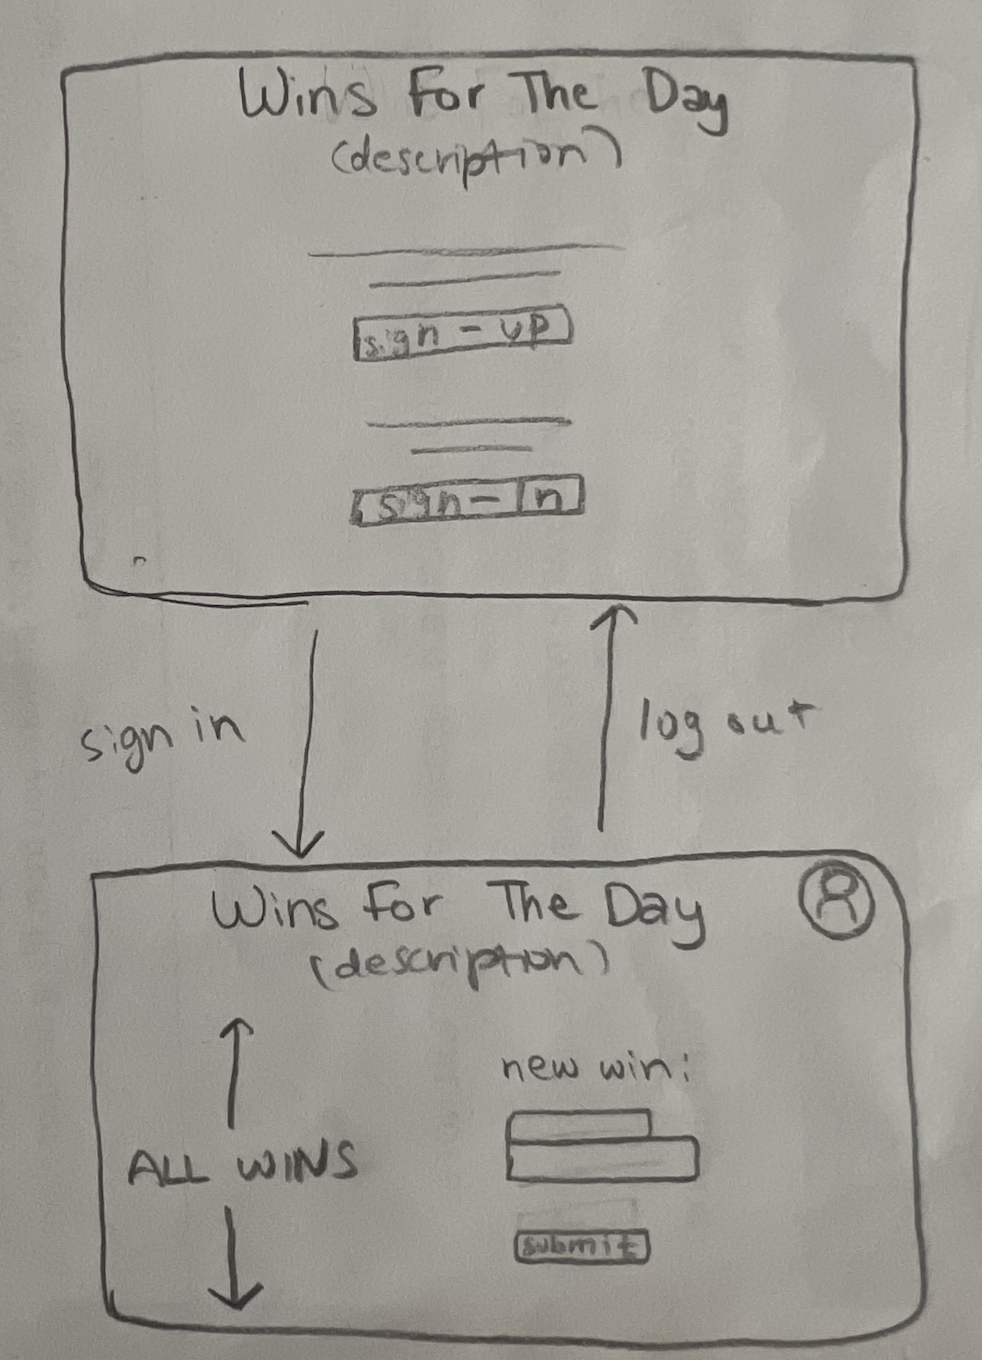 Wins For The Day
(description)
sign-up
sign-in
sign in
log out
Wins For The Day
(description)
new win:
ALL WINS
submit